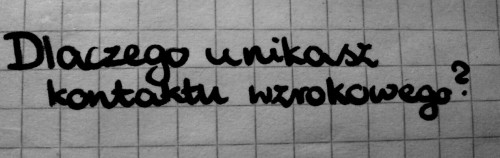 Dlaczego unikasz
kontaktu wzrokowego?